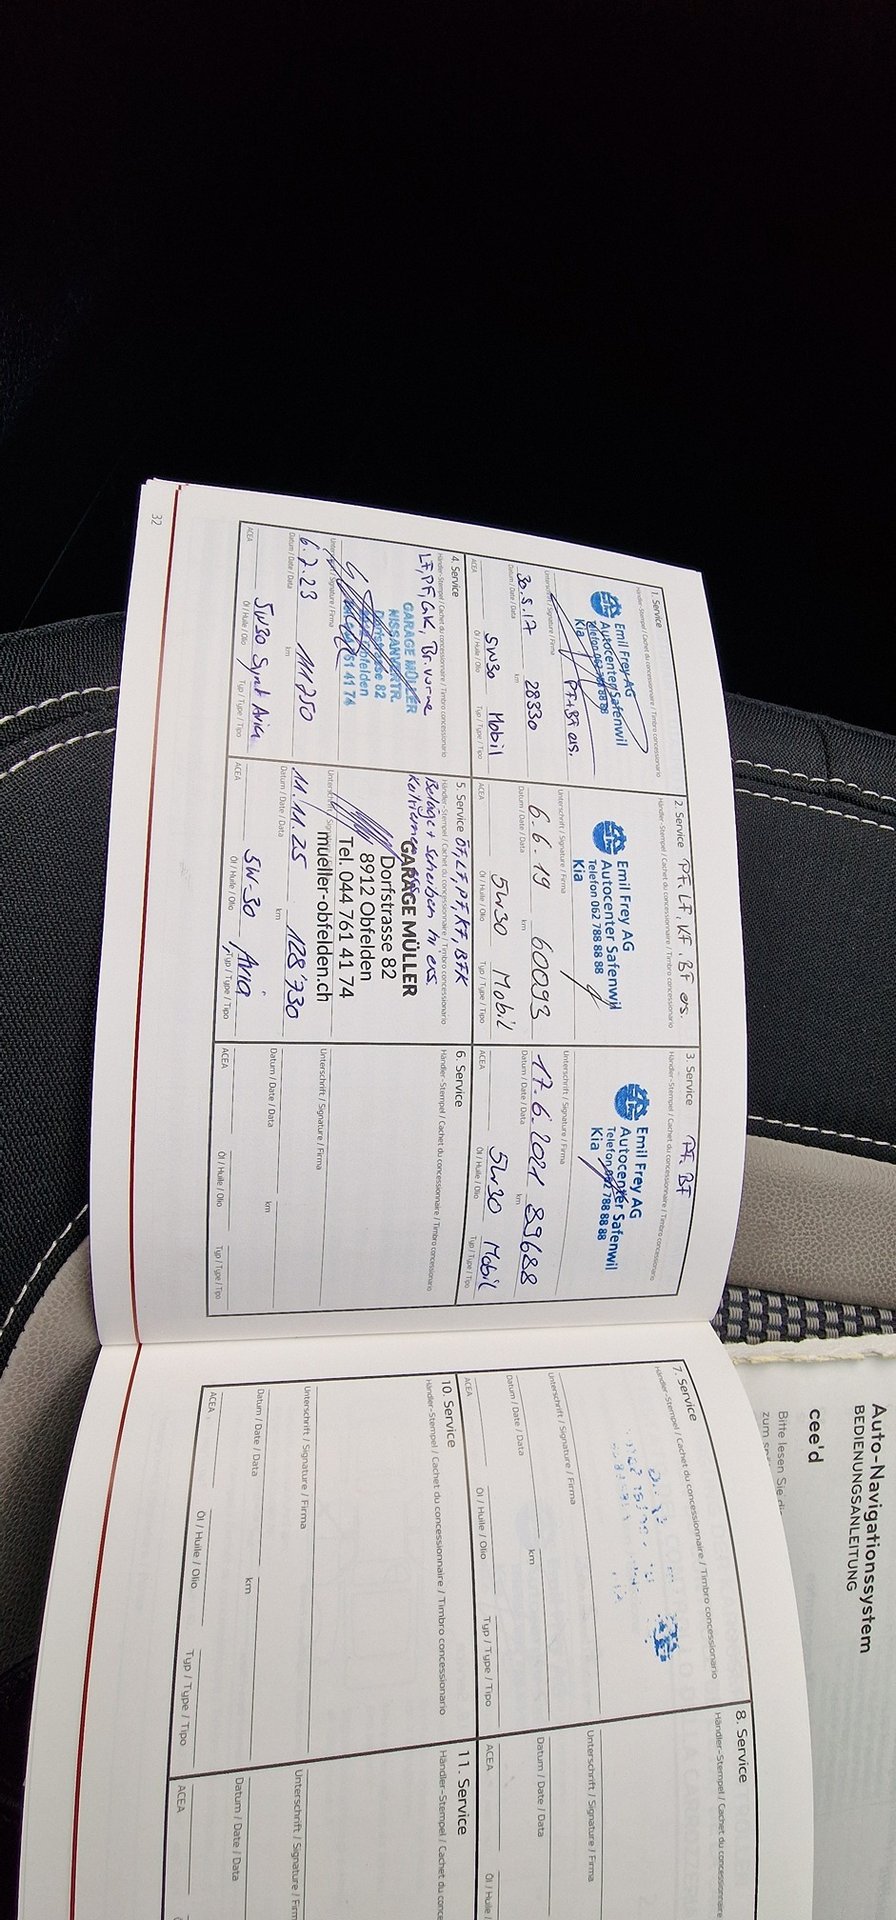 1. Service
Händler-Stempel / Cachet du concessionnaire / Timbro concessionario
Emil Frey AG
Autocenter Safenwil
Telefon 062 788 88 88
Kia
PF+BF ers.
Unterschrift / Signature / Firma
30.5.17 28330
Datum / Date / Data km
5W30 Mobil
ACEA Öl / Huile / Olio Typ / Type / Tipo
2. Service PF, LF, KF, BF ers.
Händler-Stempel / Cachet du concessionnaire / Timbro concessionario
Emil Frey AG
Autocenter Safenwil
Telefon 062 788 88 88
Kia
Unterschrift / Signature / Firma
6.6.19 60093
Datum / Date / Data km
5W30 Mobil
ACEA Öl / Huile / Olio Typ / Type / Tipo
3. Service PF, BF
Händler-Stempel / Cachet du concessionnaire / Timbro concessionario
Emil Frey AG
Autocenter Safenwil
Telefon 062 788 88 88
Kia
Unterschrift / Signature / Firma
17.6.2021 89688
Datum / Date / Data km
5W30 Mobil
ACEA Öl / Huile / Olio Typ / Type / Tipo
4. Service
Händler-Stempel / Cachet du concessionnaire / Timbro concessionario
LF, PF, GK, Br. vorne
GARAGE MÜLLER
NISSAN-VERTR.
Dorfstrasse 82
Obfelden
761 41 74
Unterschrift / Signature / Firma
6.2.23 111250
Datum / Date / Data km
5W30 Synt Avia
ACEA Öl / Huile / Olio Typ / Type / Tipo
5. Service ÖF, LF, PF, KF, BFK
Händler-Stempel / Cachet du concessionnaire / Timbro concessionario
Beläge + Scheiben hi ers.
GARAGE MÜLLER
Dorfstrasse 82
8912 Obfelden
Tel. 044 761 41 74
mueller-obfelden.ch
11.11.25 128'730
Datum / Date / Data km
5W30 Avia
ACEA Öl / Huile / Olio Typ / Type / Tipo
6. Service
Händler-Stempel / Cachet du concessionnaire / Timbro concessionario
Unterschrift / Signature / Firma
Datum / Date / Data km
ACEA Öl / Huile / Olio Typ / Type / Tipo
32
7. Service
Händler-Stempel / Cachet du concessionnaire / Timbro concessionario
Unterschrift / Signature / Firma
Datum / Date / Data km
ACEA Öl / Huile / Olio Typ / Type / Tipo
8. Service
Händler-Stempel / Cachet du concessionnaire
Unterschrift / Signature / Firma
Datum / Date / Data
ACEA Öl / Huile
10. Service
Händler-Stempel / Cachet du concessionnaire / Timbro concessionario
Unterschrift / Signature / Firma
Datum / Date / Data km
ACEA Öl / Huile / Olio Typ / Type / Tipo
11. Service
Händler-Stempel / Cachet du
Unterschrift / Signature
Datum / Date / Data
ACEA
Auto-Navigationssystem
BEDIENUNGSANLEITUNG
cee'd
Bitte lesen Sie
zum